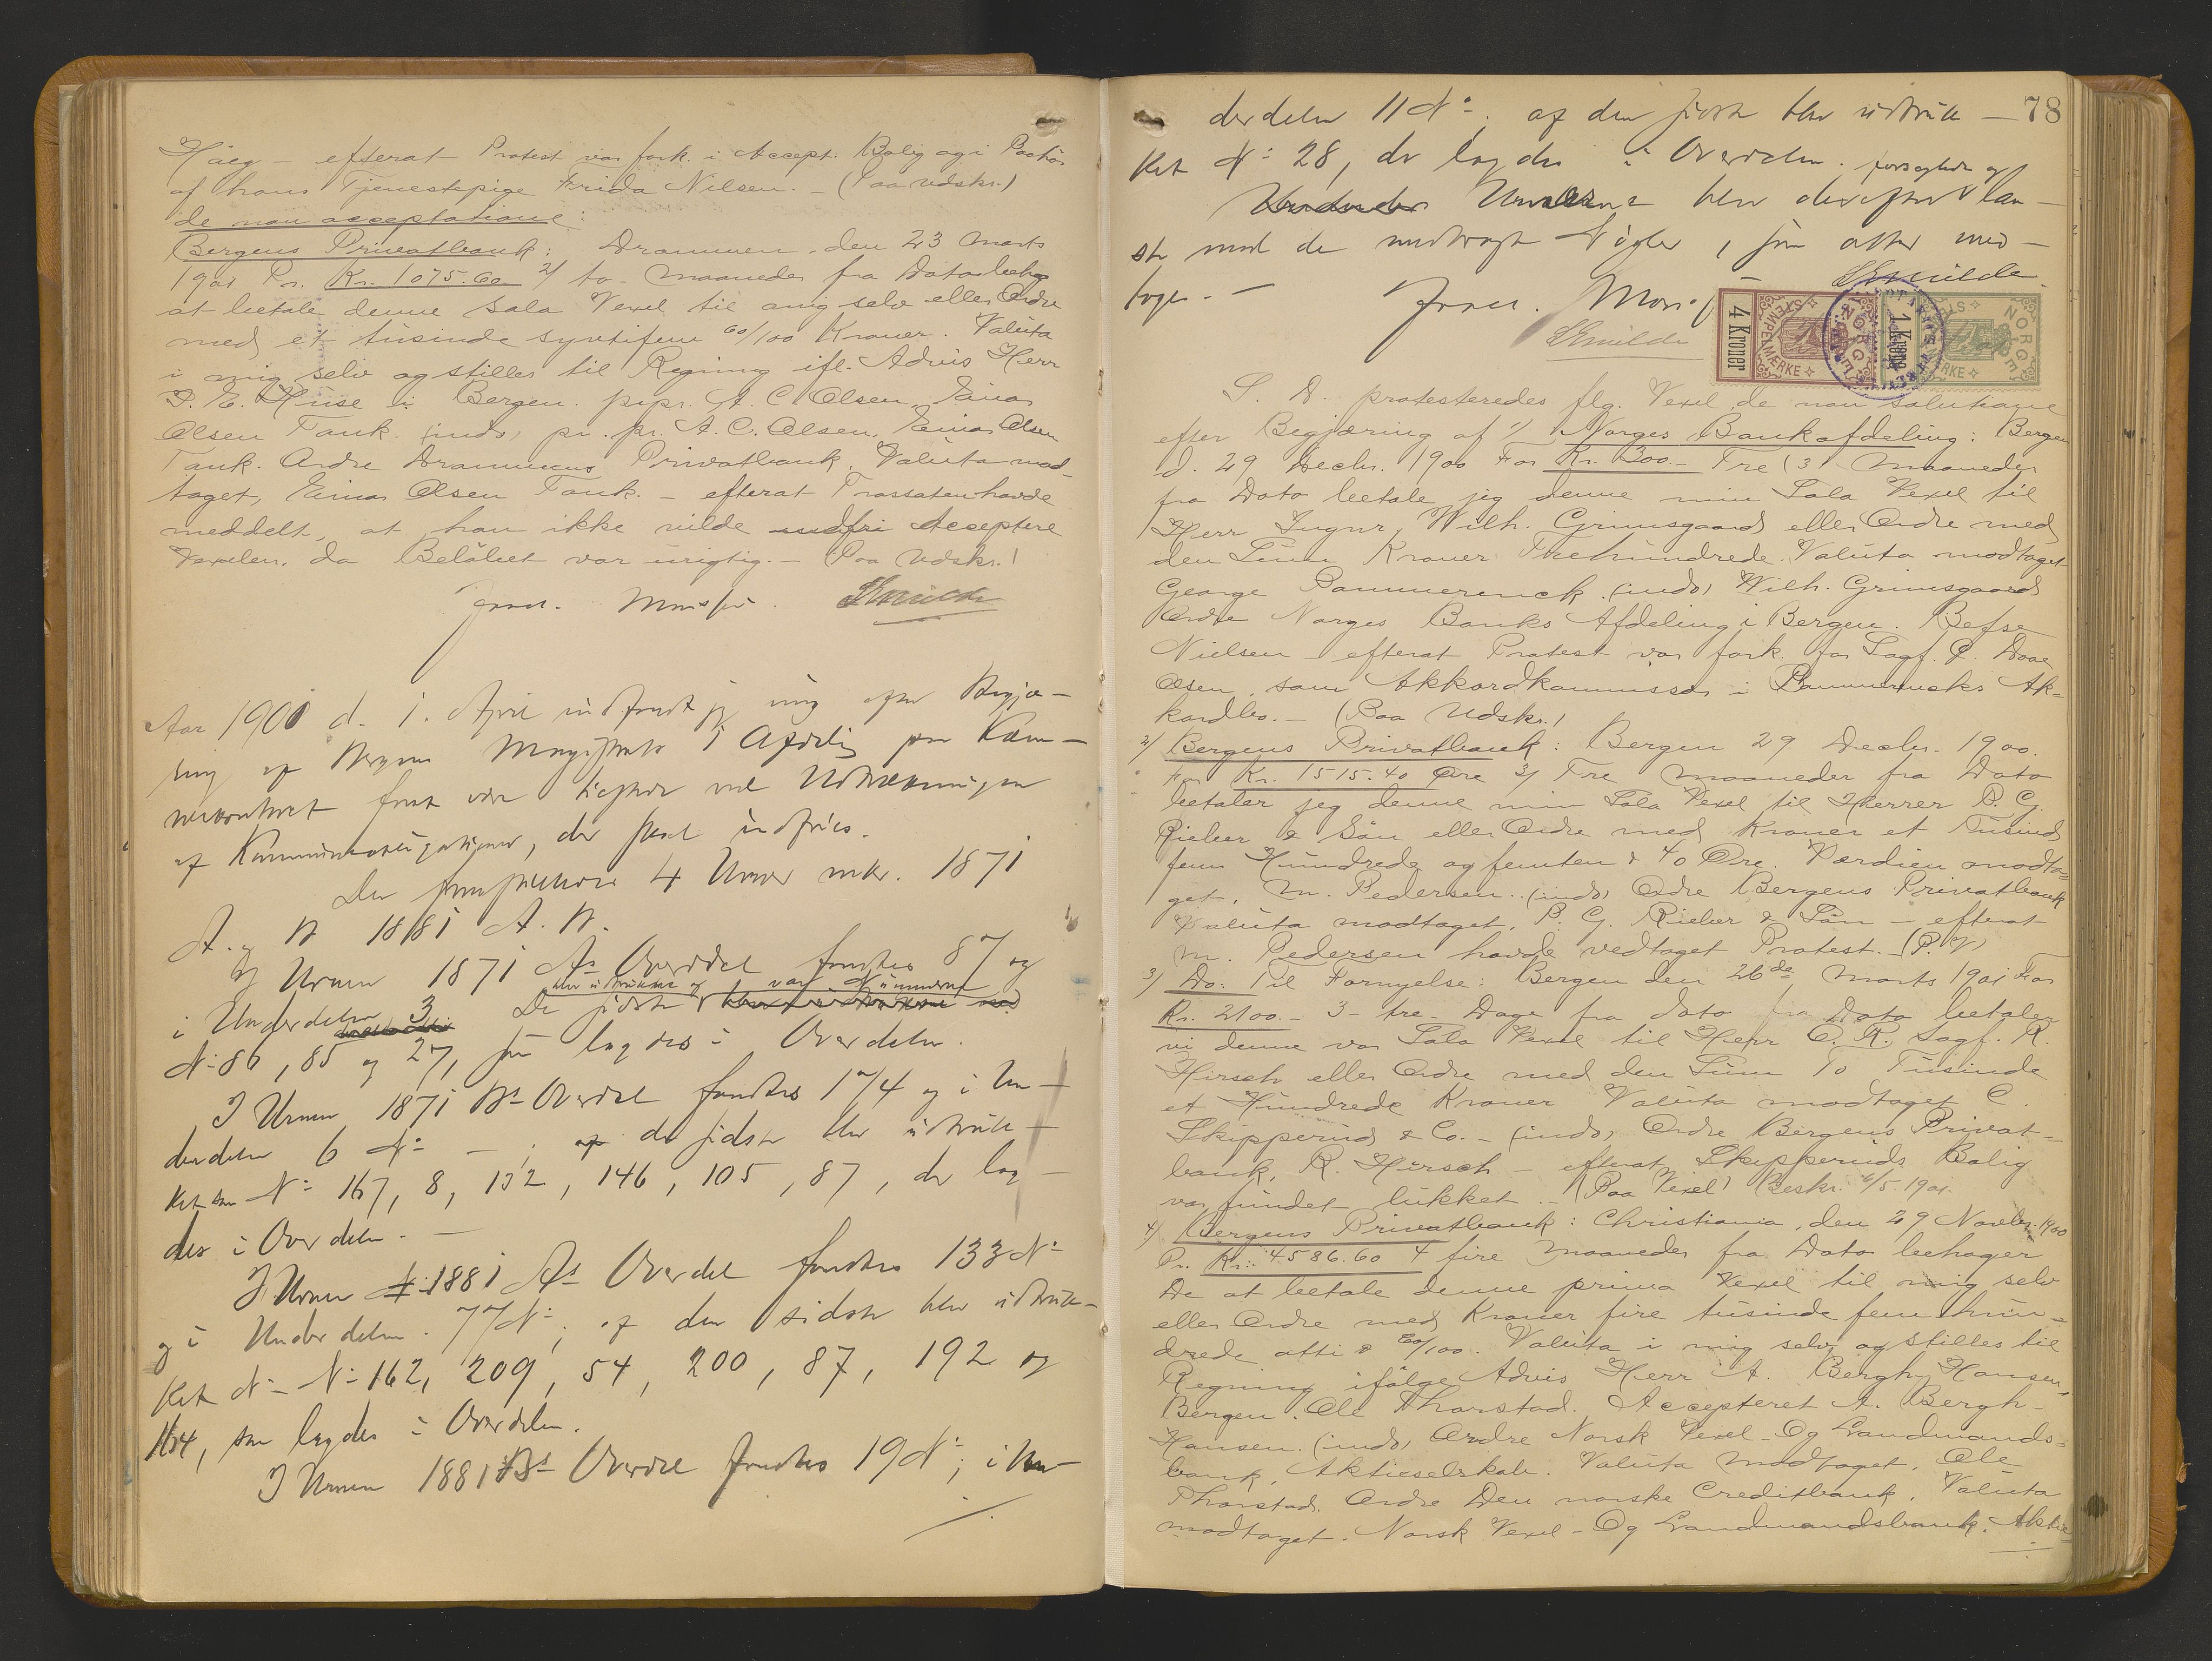 Høeg – efterat Protest var fork. i Accept. Bolig og i Paahør
af hans Tjenestepige Frida Nilsen. – (Paa Udskr.)
de non acceptatione:
Bergens Privatbank: Drammen, den 23 Marts
1901 Pr. Kr. 1075.60 2/ to Maaneder fra Dato behag
at betale denne Sola Vexel til mig selv eller Ordre
med et tusinde syvtifem 60/100 Kroner. Valuta
i mig selv og stilles til Regning ifl. Advis Herr
Huse i Bergen. pr. pr. A. C. Olsen, Einar
Olsen Tank. (indo) pr. pr. A. C. Olsen, Einar Olsen
Tank. Ordre Drammens Privatbank. Valuta mod-
taget, Einar Olsen Tank. – efterat Trassaten havde
meddelt, at han ikke vilde indfri Acceptere
Vexelen, da Beløbet var urigtig. – (Paa Udskr.)
Aar 1901 d. 1. April indfandt jeg mig efter Begjæ-
ring af Bergens Magistrats 1 Afdeling paa Kæm-
nerkontoret for at være tilstede ved Udtrækningen
af Kommuneobligationer, der skal indfries.
Der 4 Urner mkr. 1871
A. og B 1881 A. B.
I Urnen 1871 As Overdel fandtes 87 og
blev udtrukket og var Nummerne
i Underdelen 3 De sidste
No 86, 85 og 27, som lagdes i Overdelen.
I Urnen 1871 Bs Overdel fandtes 174 og i Un-
derdelen 6 No – ; af de sidste blev udtruk-
ket No 167, 8, 132, 146, 105, 87, der lag-
des i Overdelen. –
I Urnen 1881 As Overdel fandtes 133 No
og i Underdelen 77 No; af den sidste blev udtruk-
ket No 162, 209, 54, 200, 87, 192 og
164, som lagdes i Overdelen.
I Urnen 1881 Bs Overdel fandtes 19 No; i Un-
78
derdelen 11 No. af den sidste blev udtruk-
ket No 28, der lagdes i Overdelen. forseglede og
Urnerne blev derefter laa-
ste med de modtagne Nøgler, som atter med-
toges. –
4 Kroner
STEMPELMÆRKE
NORGE
1 Krone
NORGE
S. D. protesteredes flg. Vexel de non solutione
efter Begjæring af 1/ Norges Bankafdeling: Bergen
d. 29 Decbr. 1900 For Kr. 300.– Tre (3) Maaneder
fra Dato betale jeg denne min Sola Vexel til
Herr Ingnr. Wilh. Grimsgaard eller Ordre med
den Sum Kroner Trehundrede. Valuta modtaget
George Pommerenck. (indo) Wilh. Grimsgaard
Ordre Norges Banks Afdeling i Bergen.
Nielsen – efterat Protest var fork. for Sagf.
Olsen, som Akkordkommissær i Pommerencks Ak-
kordbo. – (Paa Udskr.)
2/ Bergens Privatbank: Bergen 29 Decbr. 1900.
For Kr. 1515.40 Øre 3/ Tre Maaneder fra Dato
betaler jeg denne min Sola Vexel til Herrer P. G.
Rieber & Søn eller Ordre med Kroner et Tusind
fem Hundrede og femten & 40 Øre. Værdien modta-
get, M. Pedersen. (indo) Ordre Bergens Privatbank
Valuta modtaget. P. G. Rieber & Søn – efterat
M. Pedersen havde vedtaget Protest. (P. V)
3/ Do: Til Fornyelse: Bergen den 26de Marts 1901 For
Kr. 2100.– 3– tre– Dage fra dato fra Dato betaler
vi denne vor Sola Vexel til Herr O. R. Sagf. R.
Hirsch eller Ordre med den Sum To Tusinde
et Hundrede Kroner Valuta modtaget C.
Skipperud & Co. – (indo) Ordre Bergens Privat-
bank, R. Hirsch – efterat Skipperuds Bolig
var fundet lukket. – (Paa Vexel) Beskr. 6/5 1901.
4/ Bergens Privatbank: Christiania, den 29 Novbr. 1900
Pr. Kr. 4586.60 4 fire Maaneder fra Dato behager
De at betale denne prima Vexel til mig selv
eller Ordre med Kroner fire tusinde fem hun-
drede otti & 60/100. Valuta i mig selv og stilles til
Regning ifølge Advis Herr A. Bergh-Hansen,
Bergen. Ole Thorstad. Accepteret A. Bergh-
Hansen. (indo) Ordre Norsk Vexel- Og Landmands-
bank, Aktieselskab. Valuta modtaget, Ole
Thorstad. Ordre Den norske Creditbank. Valuta
modtaget. Norsk Vexel- Og Landmandsbank. Aktie-